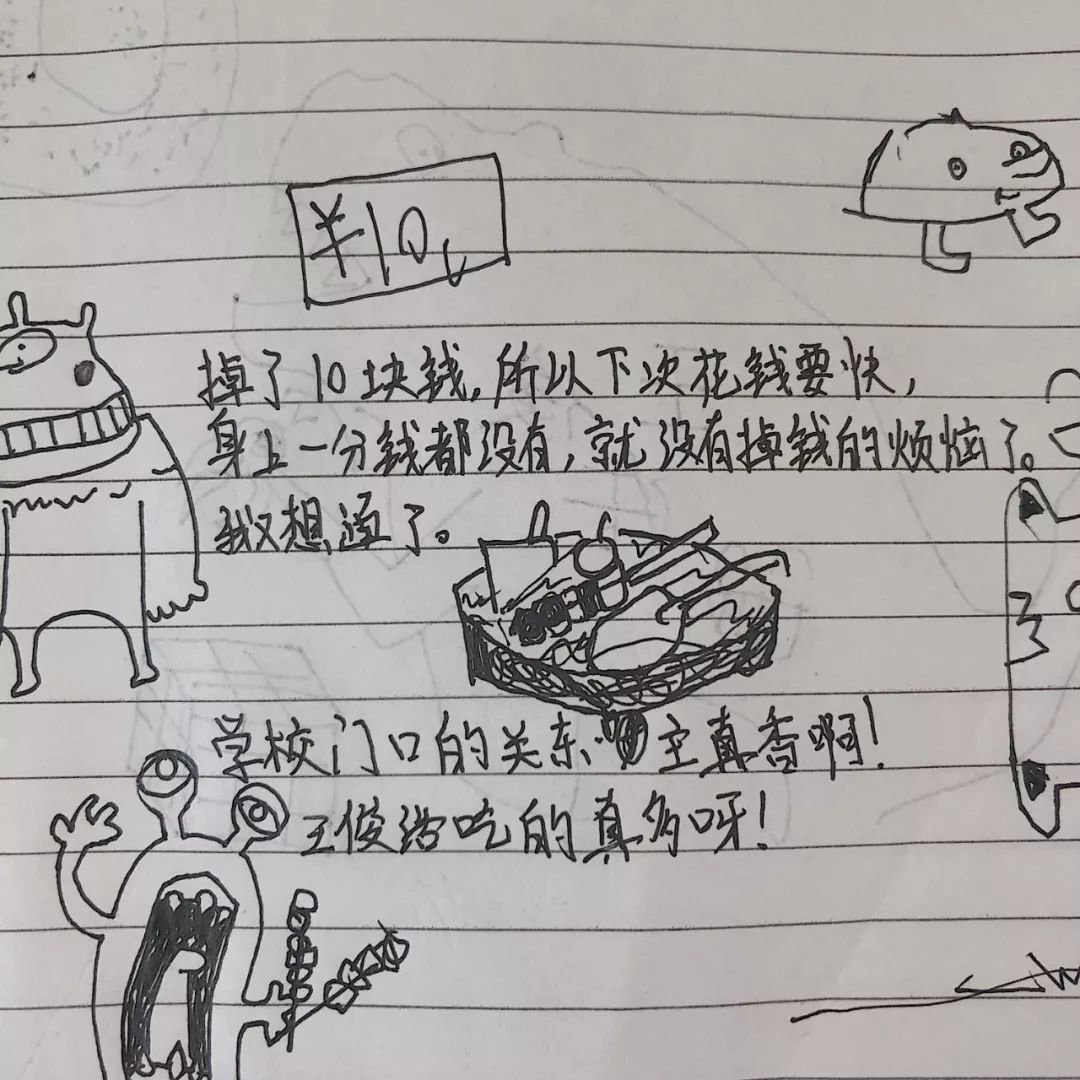 ¥10
掉了10块钱,所以下次花钱要快,
身上一分钱都没有,就没有掉钱的烦恼了。
我又想通了。
学校门口的关东 主真香啊!
王俊浩吃的真多呀!